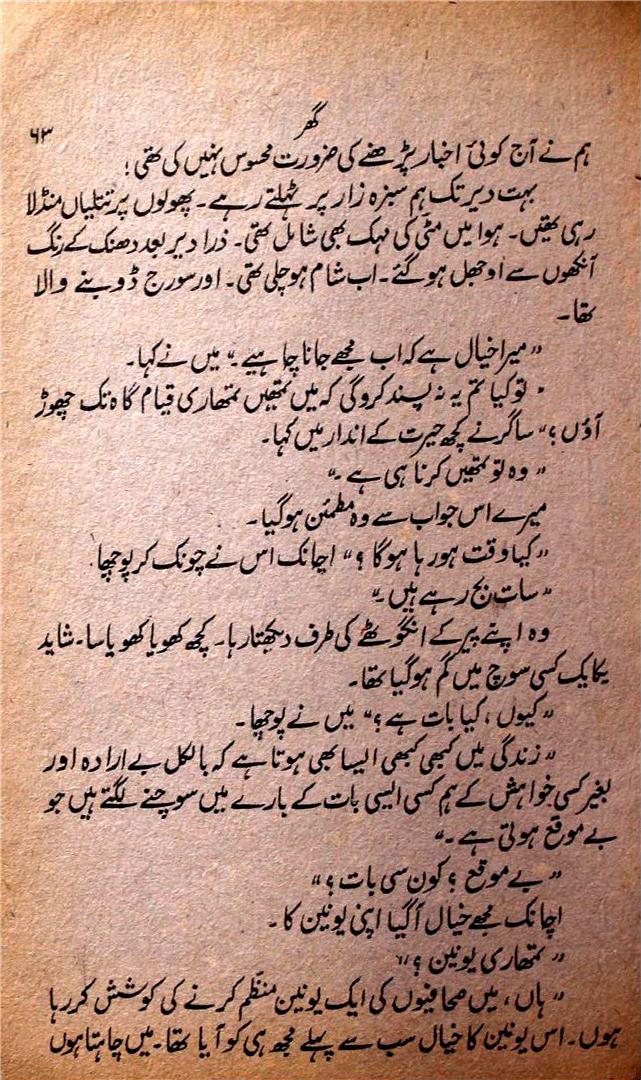 گھر
۶۳
ہم نے آج کوئی اخبار پڑھنے کی ضرورت محسوس نہیں کی تھی؛
بہت دیر تک ہم سبزہ زار پر ٹہلتے رہے۔ پھولوں پر تتلیاں منڈلا
رہی تھیں۔ ہوا میں مٹی کی مہک بھی شامل تھی۔ ذرا دیر بعد دھنک کے رنگ
آنکھوں سے اوجھل ہو گئے۔ اب شام ہو چلی تھی۔ اور سورج ڈوبنے والا
تھا۔
”میرا خیال ہے کہ اب مجھے جانا چاہیے۔“ میں نے کہا۔
”تو کیا تم یہ نہ پسند کرو گی کہ میں تمھیں تمھاری قیام گاہ تک چھوڑ
آؤں؟“ ساگر نے کچھ حیرت کے اندار میں کہا۔
”وہ تو تمھیں کرنا ہی ہے۔“
میرے اس جواب سے وہ مطمئن ہو گیا۔
”کیا وقت ہو رہا ہوگا؟“ اچانک اس نے چونک کر پوچھا
”سات بج رہے ہیں۔“
وہ اپنے پیر کے انگوٹھے کی طرف دیکھتا رہا۔ کچھ کھویا کھویا سا۔ شاید
یکایک کسی سوچ میں گم ہو گیا تھا۔
”کیوں، کیا بات ہے؟“ میں نے پوچھا۔
”زندگی میں کبھی کبھی ایسا بھی ہوتا ہے کہ بالکل بے ارادہ اور
بغیر کسی خواہش کے ہم کسی ایسی بات کے بارے میں سوچنے لگتے ہیں جو
بے موقع ہوتی ہے۔“
”بے موقع؟ کون سی بات؟“
اچانک مجھے خیال آ گیا اپنی یونین کا۔
”تمھاری یونین؟“
”ہاں، میں صحافیوں کی ایک یونین منظّم کرنے کی کوشش کر رہا
ہوں۔ اس یونین کا خیال سب سے پہلے مجھ ہی کو آیا تھا۔ میں چاہتا ہوں